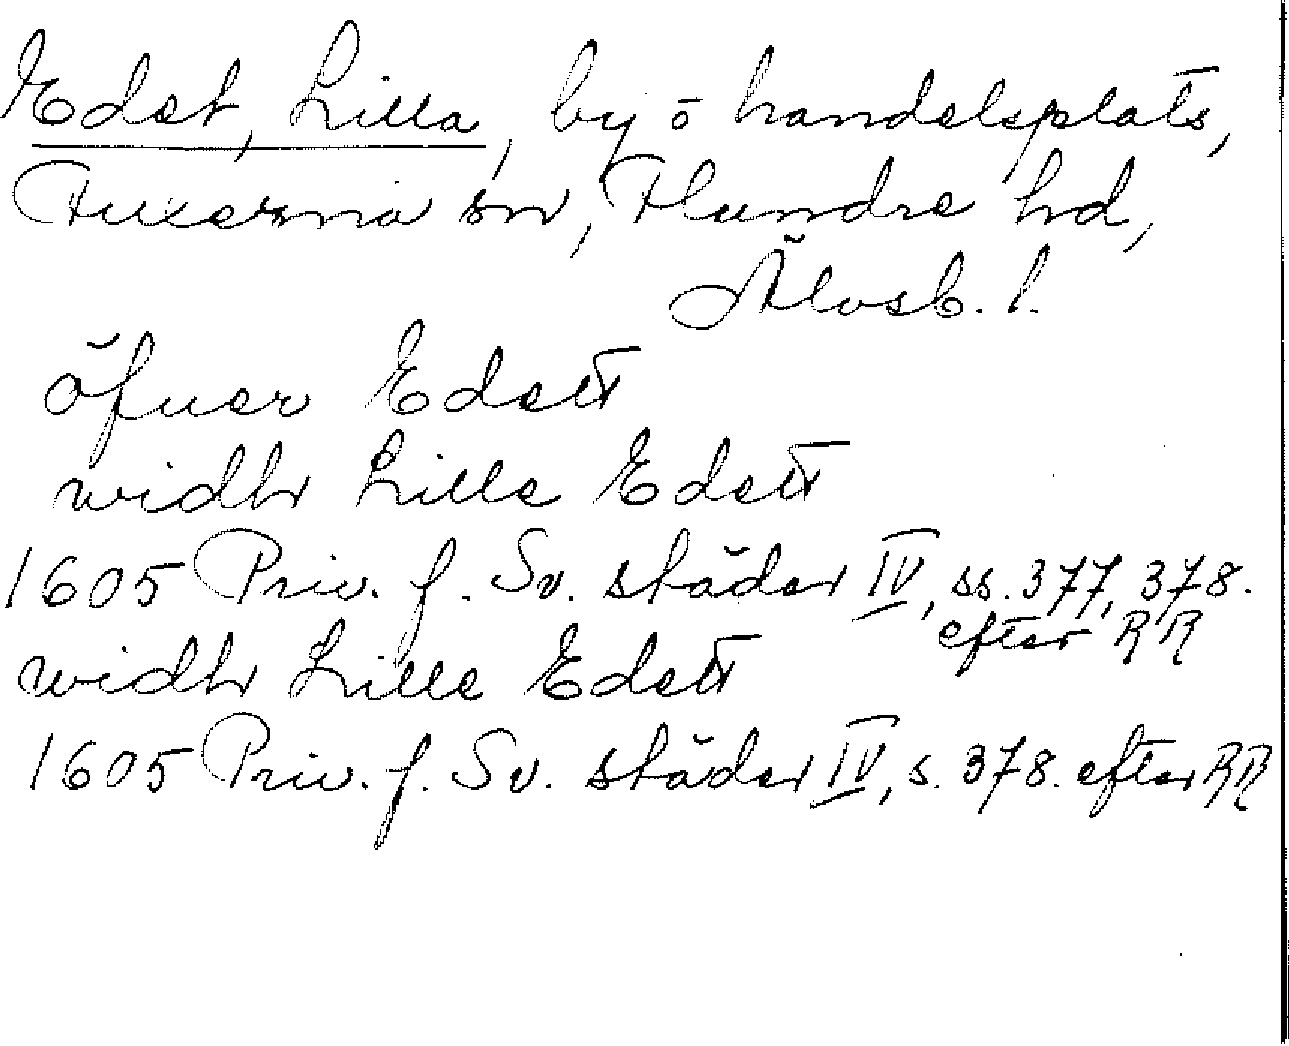 Edet, Lilla, by o handelsplats,
Fuxerna sn, Flundre hd,
Älvsb. l.
öfuer Edett
widh Lille Edett
1605 Priv. f. Sv. städer IV, ss. 377, 378.
efter RR
widh Lille Edett
1605 Priv. f. Sv. städer IV, s. 378. efter RR